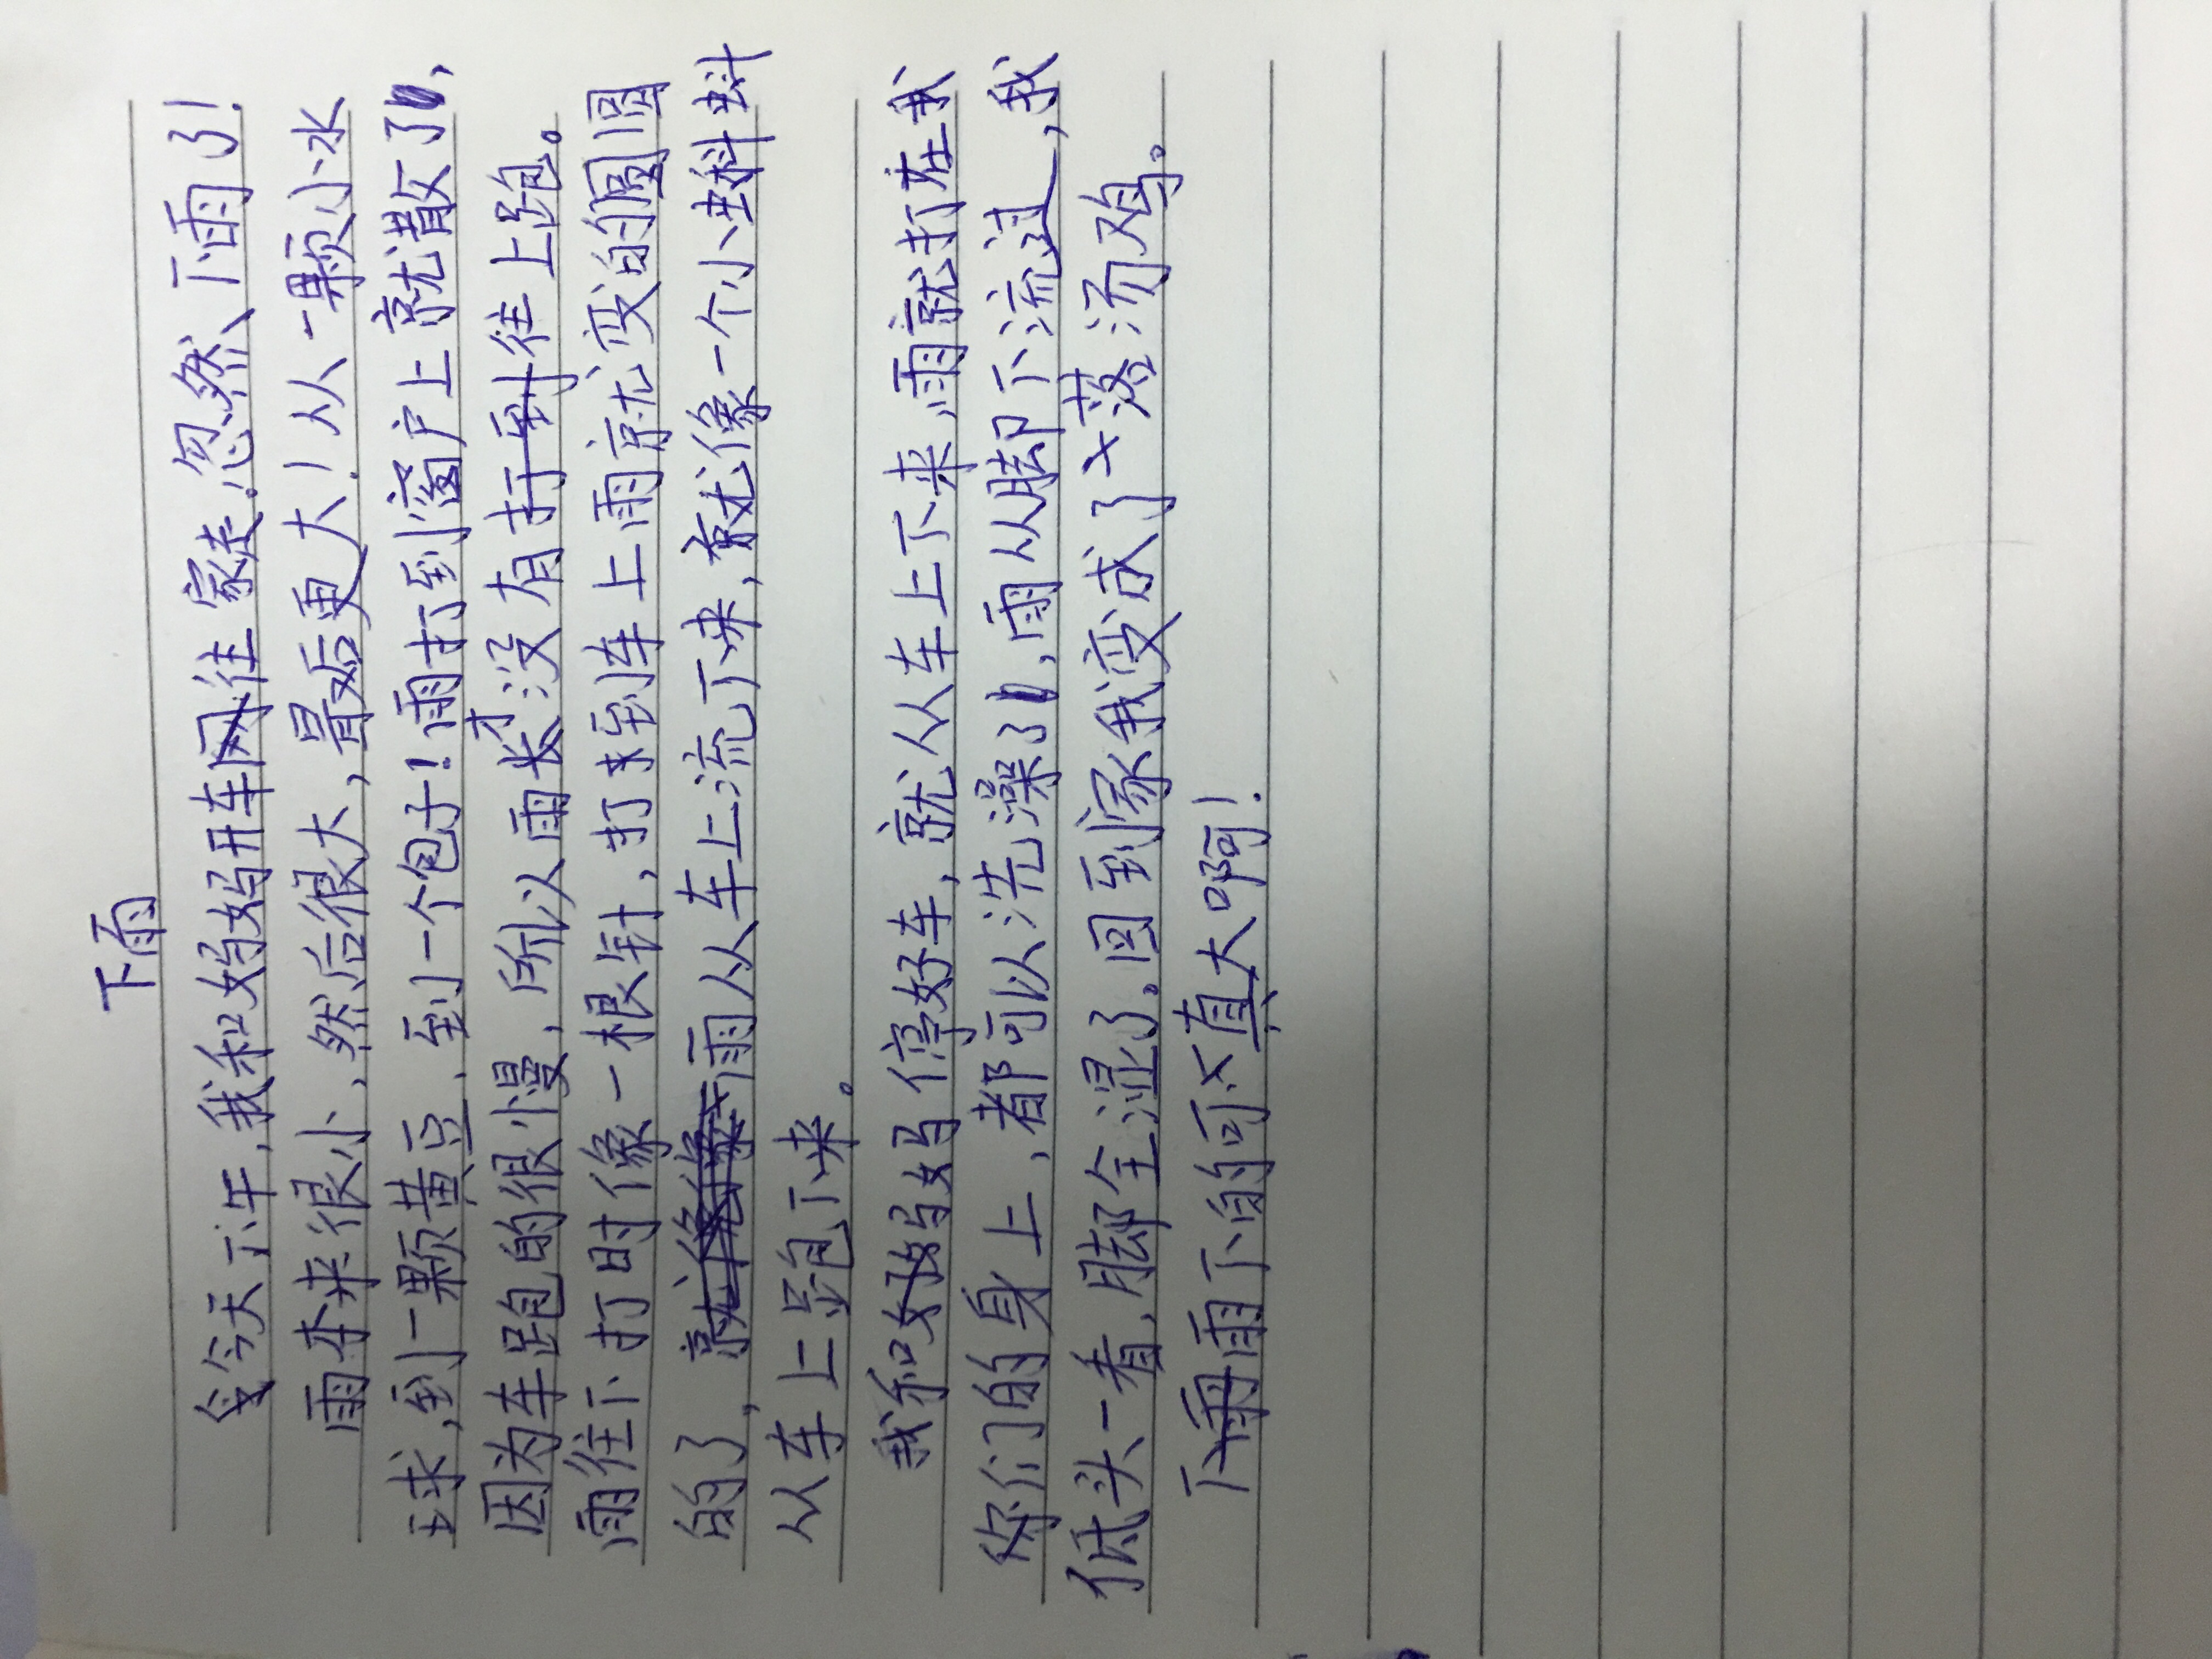 下雨
今天下午,我和妈妈开车往家走。忽然、下雨了!
雨本来很小、然后很大,最后更大!从一颗小水
球,到一颗黄豆、到一个包子!雨打到窗户上就散了,
因为车跑的很慢,所以雨才没有往上跑。
雨往下打时像一根针,打到车上雨就变的圆圆
的了,雨从车上流下来,就像一个小蝌蚪
从车上跑下来。
我和妈妈停好车,就从车上下来,雨就打在我
们的身上,都可以洗澡了,雨从脚下流过,我
低头一看,脚全湿了。回到家我变成了落汤鸡。
下雨下的可真大啊!